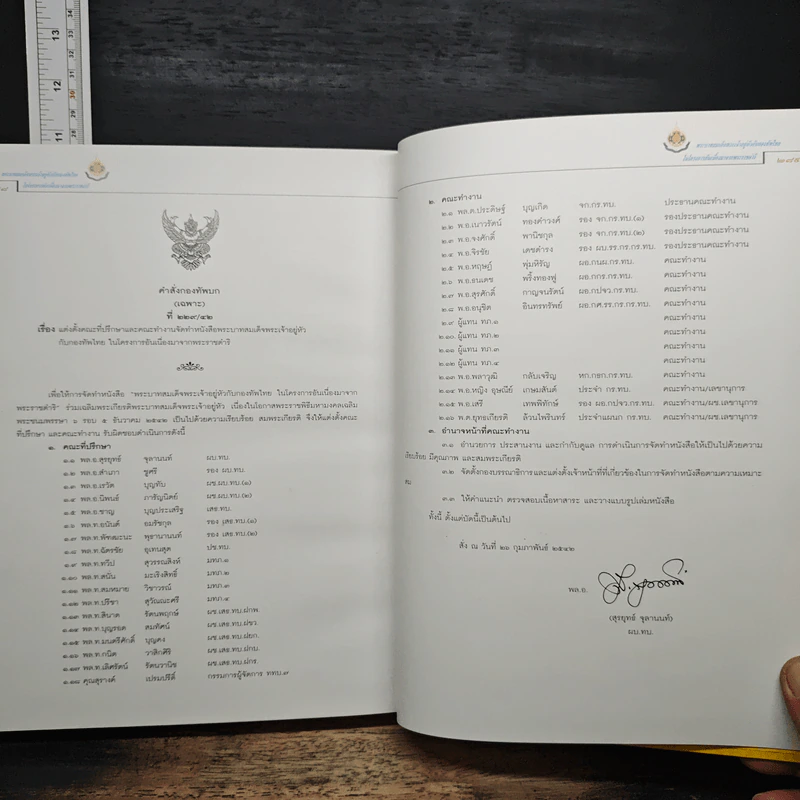 คำสั่งกองทัพบก
(เฉพาะ)
ที่ ๒๒๙/๔๒
เรื่อง แต่งตั้งคณะที่ปรึกษาและคณะทำงานจัดทำหนังสือพระบาทสมเด็จพระเจ้าอยู่หัว
กับกองทัพไทย ในโครงการอันเนื่องมาจากพระราชดำริ
เพื่อให้การจัดทำหนังสือ "พระบาทสมเด็จพระเจ้าอยู่หัวกับกองทัพไทย ในโครงการอันเนื่องมาจาก
พระราชดำริ" ร่วมเฉลิมพระเกียรติพระบาทสมเด็จพระเจ้าอยู่หัว เนื่องในโอกาสพระราชพิธีมหามงคลเฉลิม
พระชนมพรรษา ๖ รอบ ๕ ธันวาคม ๒๕๔๒ เป็นไปด้วยความเรียบร้อย สมพระเกียรติ จึงให้แต่งตั้งคณะ
ที่ปรึกษา และคณะทำงาน รับผิดชอบดำเนินการดังนี้
๑. คณะที่ปรึกษา
๑.๑ พล.อ.สุรยุทธ์ จุลานนท์ ผบ.ทบ.
๑.๒ พล.อ.สำเภา ชูศรี รอง ผบ.ทบ.
๑.๓ พล.อ.เรวัต บุญทับ ผช.ผบ.ทบ.(๑)
๑.๔ พล.อ.นิพนธ์ ภารัญนิตย์ ผช.ผบ.ทบ.(๒)
๑.๕ พล.อ.ชาญ บุญประเสริฐ เสธ.ทบ.
๑.๖ พล.ท.ยนันต์ อมรัชกุล รอง เสธ.ทบ.(๑)
๑.๗ พล.ท.พัฑฒะนะ พุธานานนท์ รอง เสธ.ทบ.(๒)
๑.๘ พล.ท.ฉัตรชัย อุเทนสุต ปช.ทบ.
๑.๙ พล.ท.ทวีป สุวรรณสิงห์ มทภ.๑
๑.๑๐ พล.ท.สนั่น มะเริงสิทธิ์ มทภ.๒
๑.๑๑ พล.ท.สมหมาย วิชาวรณ์ มทภ.๓
๑.๑๒ พล.ท.ปรีชา สุวัณณะศรี มทภ.๔
๑.๑๓ พล.ท.สินาด รัตนพฤกษ์ ผช.เสธ.ทบ.ฝกพ.
๑.๑๔ พล.ท.บุญรอด สมทัศน์ ผช.เสธ.ทบ.ฝขว.
๑.๑๕ พล.ท.มนตรีศักดิ์ บุญคง ผช.เสธ.ทบ.ฝยก.
๑.๑๖ พล.ท.กนิต วาสิกศิริ ผช.เสธ.ทบ.ฝกบ.
๑.๑๗ พล.ท.เลิศรัตน์ รัตนวานิช ผช.เสธ.ทบ.ฝกร.
๑.๑๘ คุณสุรางค์ เปรมปรีดิ์ กรรมการผู้จัดการ ททบ.๗
๒. คณะทำงาน
๒.๑ พล.ต.ประดิษฐ์ บุญเกิด จก.กร.ทบ. ประธานคณะทำงาน
๒.๒ พ.อ.เนาวรัตน์ ทองดำวงศ์ รอง จก.กร.ทบ.(๑) รองประธานคณะทำงาน
๒.๓ พ.อ.จงศักดิ์ พานิชกุล รอง จก.กร.ทบ.(๒) รองประธานคณะทำงาน
๒.๔ พ.อ.จิรชัย เดชดำรง รอง ผบ.รร.กร.กร.ทบ. รองประธานคณะทำงาน
๒.๕ พ.อ.หฤษฎ์ พุ่มหิรัญ ผอ.กนผ.กร.ทบ. คณะทำงาน
๒.๖ พ.อ.ธนเดช พริ้งทองฟู ผอ.กกร.กร.ทบ. คณะทำงาน
๒.๗ พ.อ.สุรศักดิ์ กาญจนรัตน์ ผอ.กปจว.กร.ทบ. คณะทำงาน
๒.๘ พ.อ.อนุชิต อินทรทรัพย์ ผอ.กศ.รร.กร.กร.ทบ. คณะทำงาน
๒.๙ ผู้แทน ทภ.๑ คณะทำงาน
๒.๑๐ ผู้แทน ทภ.๒ คณะทำงาน
๒.๑๑ ผู้แทน ทภ.๓ คณะทำงาน
๒.๑๒ ผู้แทน ทภ.๔ คณะทำงาน
๒.๑๓ พ.อ.พลาวุฒิ กลับเจริญ หก.กธก.กร.ทบ. คณะทำงาน
๒.๑๔ พ.อ.หญิง อุษณีย์ เกษมสันต์ ประจำ กร.ทบ. คณะทำงาน/เลขานุการ
๒.๑๕ พ.อ.เสรี เทพพิทักษ์ รอง ผอ.กปจว.กร.ทบ. คณะทำงาน/ผช.เลขานุการ
๒.๑๖ พ.ต.ยุทธเกียรติ ล้วนไพรินทร์ ประจำแผนก กร.ทบ. คณะทำงาน/ผช.เลขานุการ
๓. อำนาจหน้าที่คณะทำงาน
๓.๑ อำนวยการ ประสานงาน และกำกับดูแล การดำเนินการจัดทำหนังสือให้เป็นไปด้วยความ
เรียบร้อย มีคุณภาพ และสมพระเกียรติ
๓.๒ จัดตั้งกองบรรณาธิการและแต่งตั้งเจ้าหน้าที่ที่เกี่ยวข้องในการจัดทำหนังสือตามความเหมาะ
สม
๓.๓ ให้คำแนะนำ ตรวจสอบเนื้อหาสาระ และวางแบบรูปเล่มหนังสือ
ทั้งนี้ ตั้งแต่บัดนี้เป็นต้นไป
สั่ง ณ วันที่ ๒๖ กุมภาพันธ์ ๒๕๔๒
พล.อ.
(สุรยุทธ์ จุลานนท์)
ผบ.ทบ.